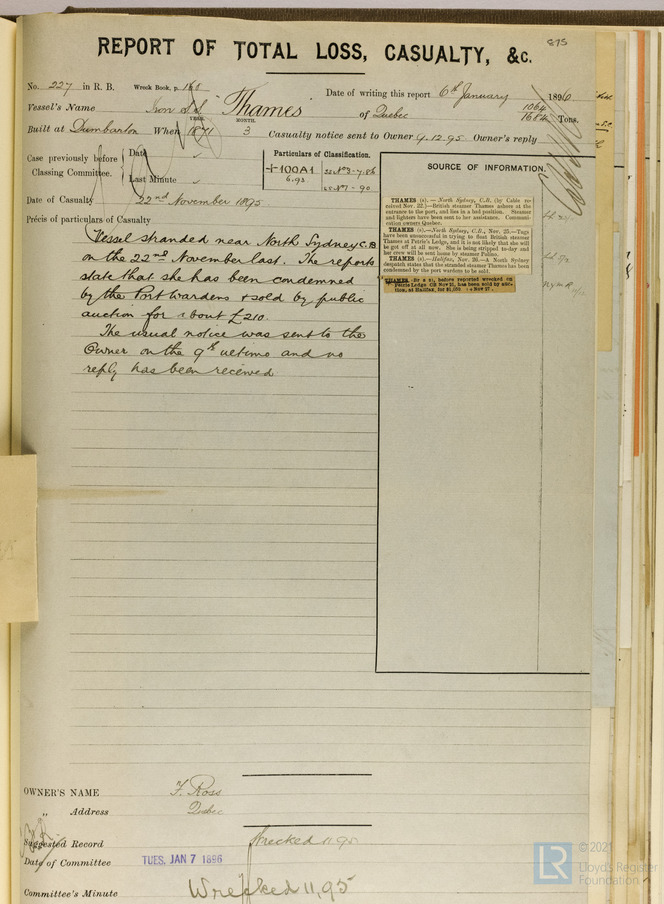 875
REPORT OF TOTAL LOSS, CASUALTY, &c.
No. 227 in R. B. Wreck Book, p. 168 Date of writing this report 6th January 1896
Vessel's Name Iron SS "Thames" of Quebec 1064 1684 Tons.
Built at Dumbarton When YEAR. 1871 MONTH. 3 Casualty notice sent to Owner 9.12.95 Owner's reply
Case previously before Classing Committee. Date ✓
Last Minute ✓
Particulars of Classification.
+100A1 6.92
ss No3-7.86
ss No1-90
SOURCE OF INFORMATION.
Date of Casualty 22nd November 1895
Précis of particulars of Casualty
Vessel stranded near North Sydney C.B
on the 22nd November last. The reports
state that she has been condemned
by the Port Wardens & sold by public
auction for about £210.
The usual notice was sent to the
Owner on the 9th ultimo and no
reply has been received
THAMES (s).—North Sydney, C.B. (by Cable received
Nov. 22.)—British steamer Thames ashore at the
entrance to the port, and lies in a bad position. Steamer
and lighters have been sent to her assistance. Communication
owners Quebec.
THAMES (s).—North Sydney, C.B., Nov. 25.—Tugs
have been unsuccessful in trying to float British steamer
Thames at Petrie's Ledge, and it is not likely that she will
be got off at all now. She is being stripped to-day and
her crew will be sent home by steamer
THAMES (s).—Halifax, Nov. 26.—A North Sydney
despatch states that the stranded steamer Thames has been
condemned by the port wardens to be sold.
THAMES, before reported wrecked on
Petrie Ledge CB Nov 21, has been sold by auction,
at Halifax, for $1,050 Nov 27
OWNER'S NAME F. Ross
„ Address Quebec
Suggested Record Wrecked 11.95
Date of Committee TUES. JAN 7 1896
Committee's Minute Wrecked 11,95
© 2021
LR
Lloyd's Register
Foundation